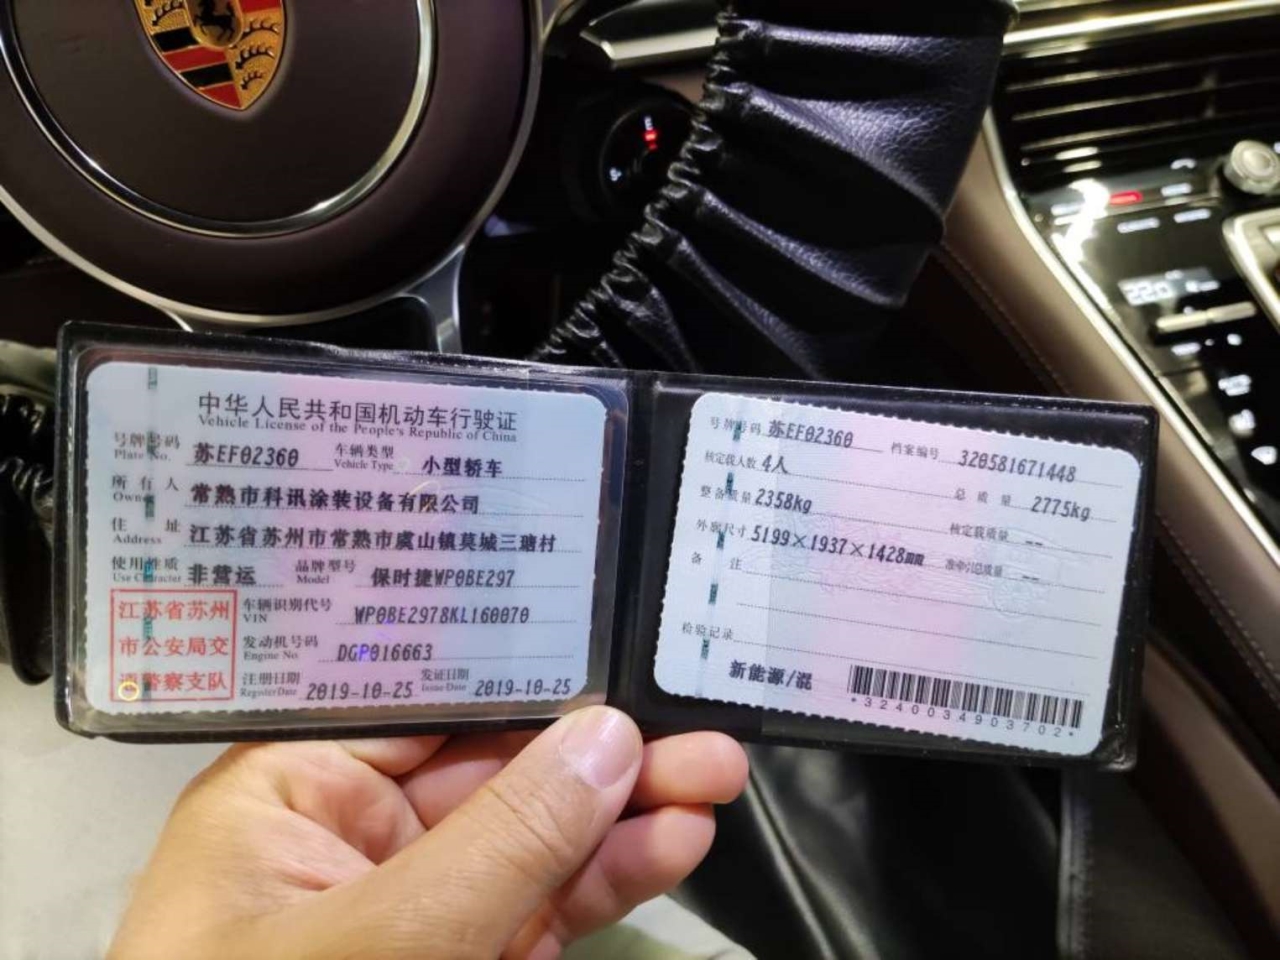 中华人民共和国机动车行驶证
Vehicle License of the People's Republic of China
号牌号码 苏EF02360 车辆类型 小型轿车
Plate No. Vehicle Type
所有人 常熟市科讯涂装设备有限公司
Owner
住址 江苏省苏州市常熟市虞山镇莫城三塘村
Address
使用性质 非营运 品牌型号 保时捷WP0BE297
Use Character Model
江苏省苏州
市公安局交
通警察支队
车辆识别代号 WP0BE2978KL160070
VIN
发动机号码 DGP016663
Engine No.
注册日期 2019-10-25 发证日期 2019-10-25
Register Date Issue Date
号牌号码 苏EF02360 档案编号 320581671448
核定载人数 4人 总质量 2775kg
整备质量 2358kg 核定载质量 --
外廓尺寸 5199×1937×1428mm 准牵引总质量 --
备注
检验记录
新能源/混
*3240034903702*
220